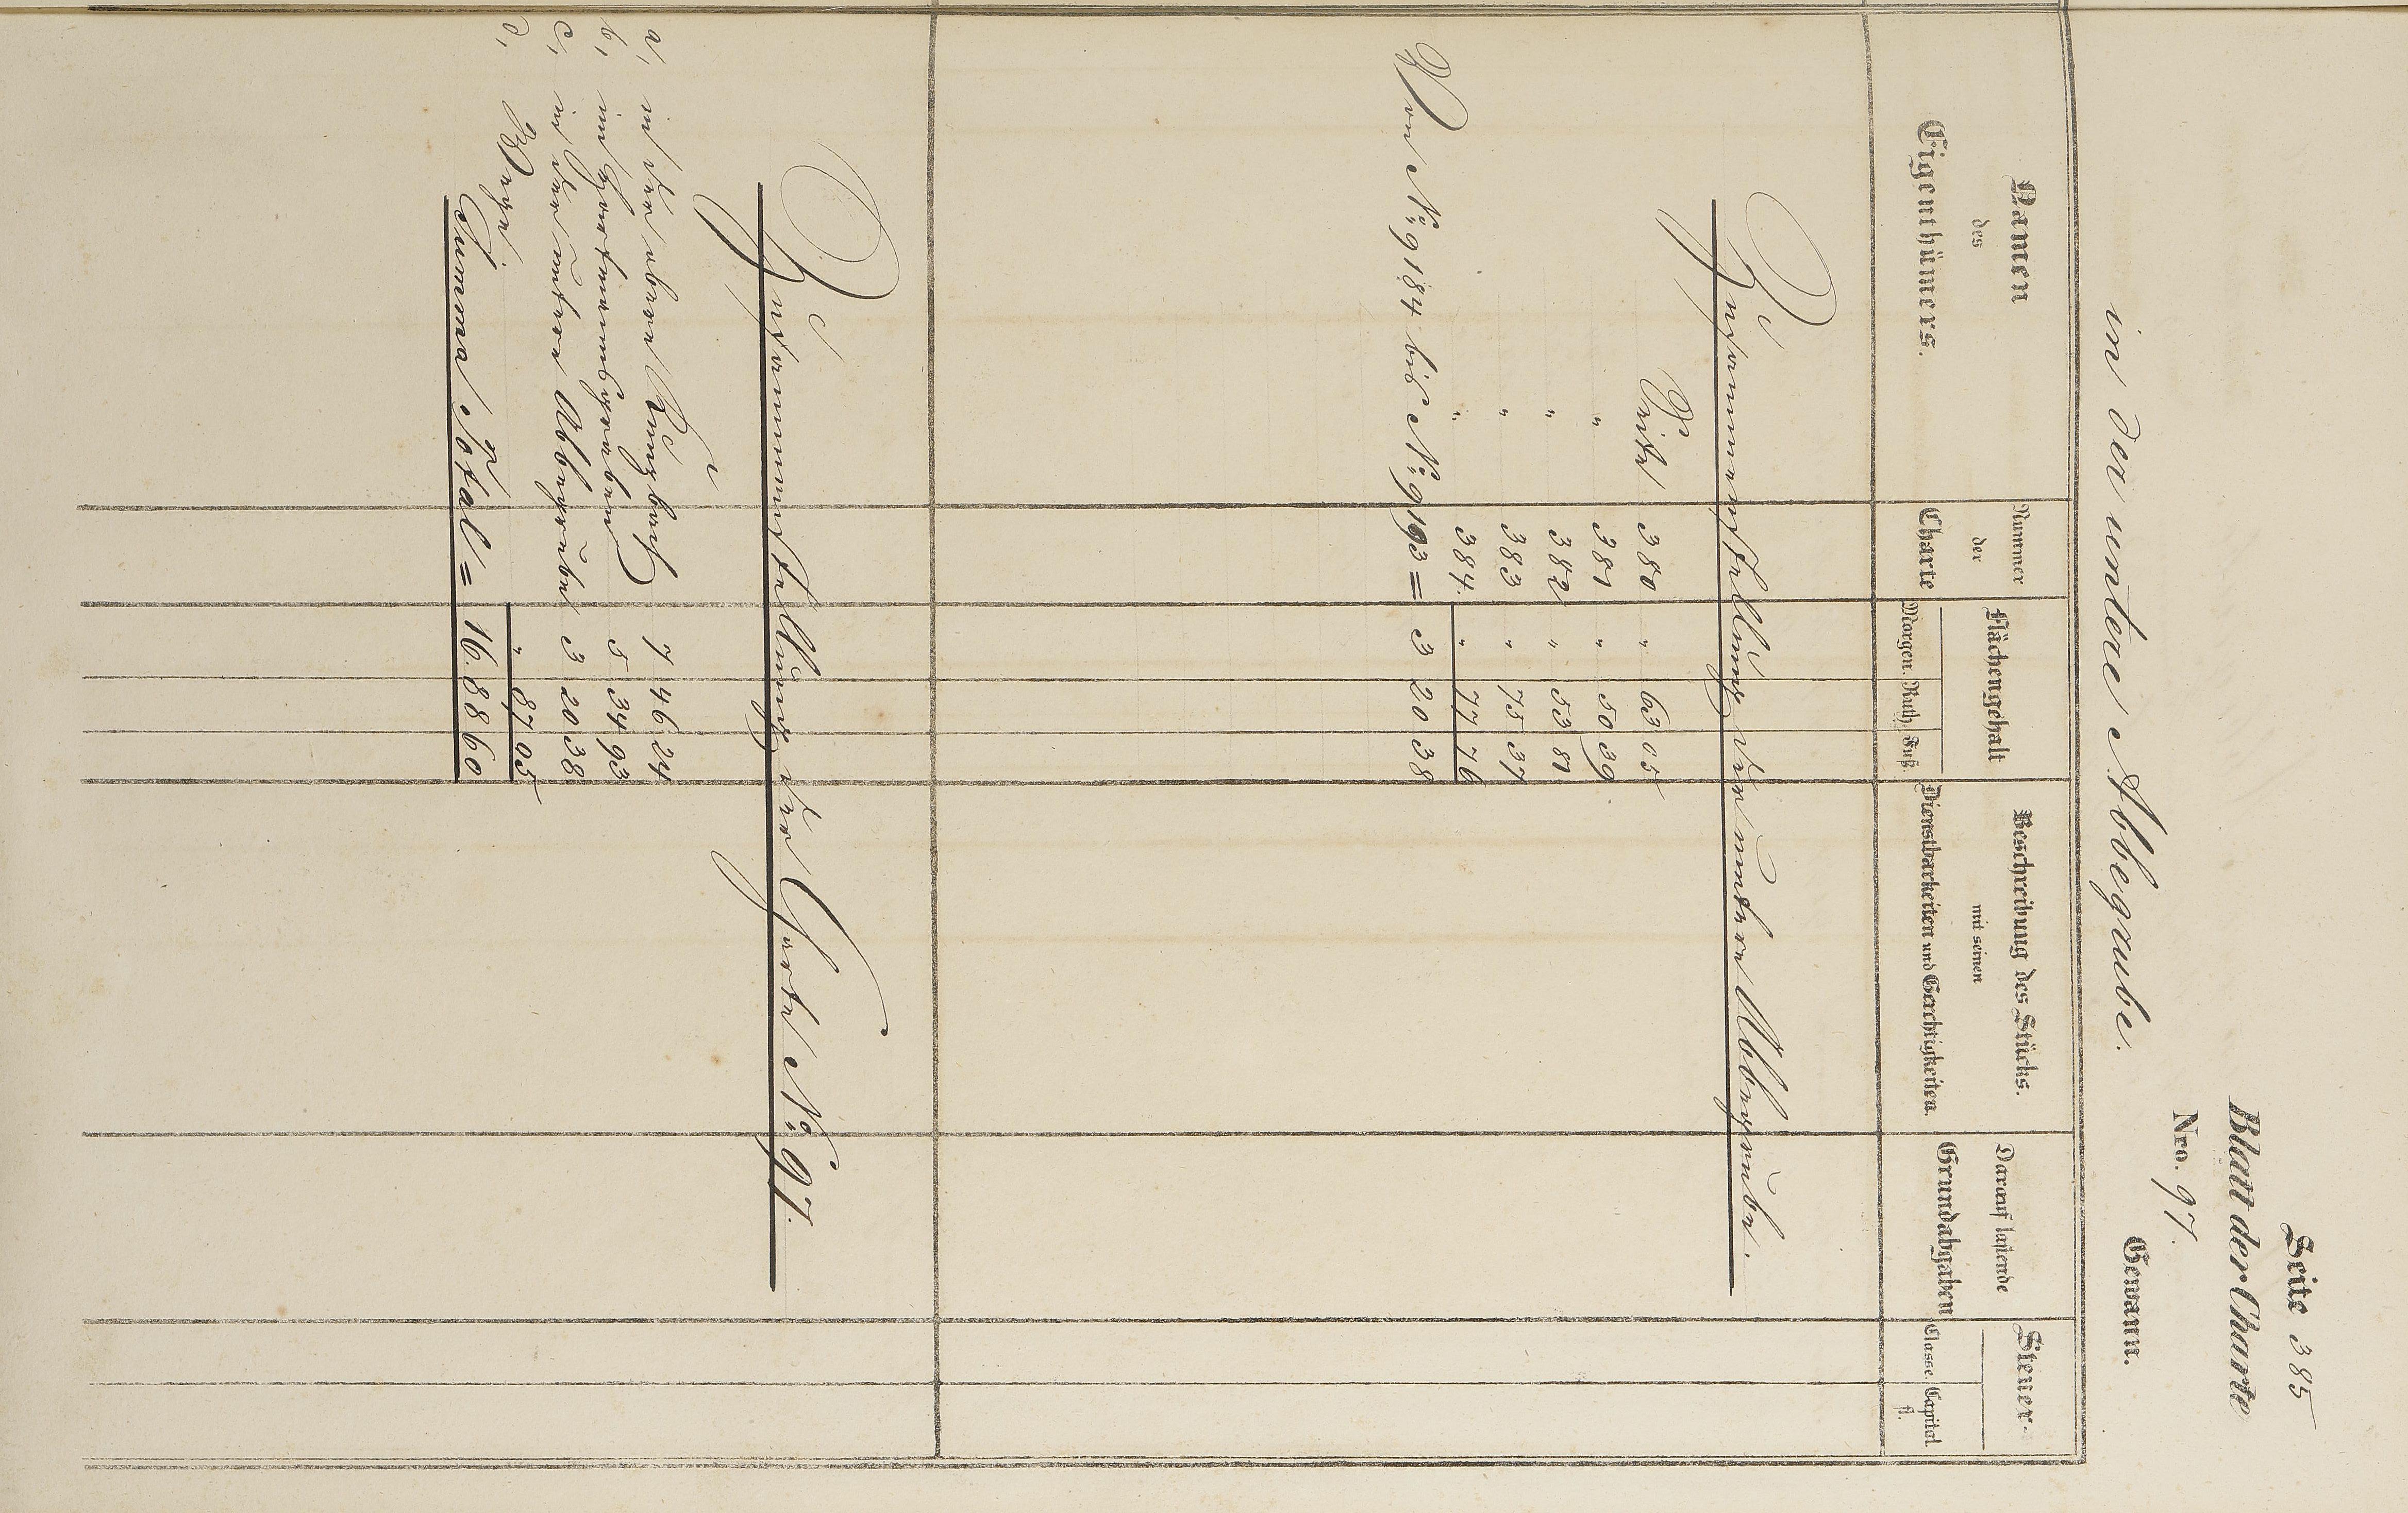 Seite 385
Blatt der Charte
Nro. 97.
in der untere Abbegrube.
Gewann.
Namen des Eigenthümers.
Nummer der Charte
Flächengehalt
Morgen. Ruth. Fuß.
Beschreibung des Stücks.
mit seinen
Dienstbarkeiten und Gerechtigkeiten.
Darauf lastende
Grundabgaben
Steuer.
Classe. Capital
fl.
Zusammenstellung der untere Abbegrube.
Seite 380 " 63 05
" 381 " 50 39
" 382 " 53 81
" 383 " 75 37
" 384. " 77 76
Von No. 9184 bis No. 9193 = 3 20 38
Zusammenstellung der Charte No. 97.
a, in der obere 7 46 24
b, im 5 34 93
c, in der untere Abbegrube 3 20 38
d, Wege. " 87 05
Summa Total = 16 88 60